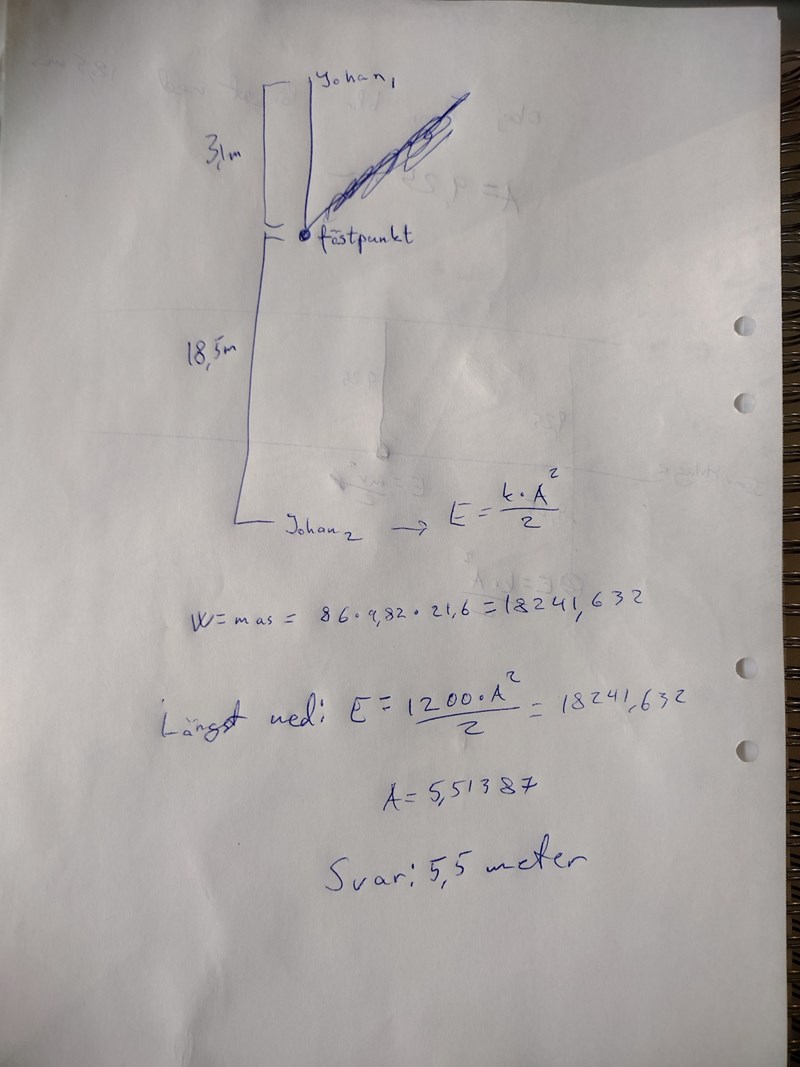 Johan₁
3,1m
fästpunkt
18,5m
Johan₂ → E = k·A²/2
W=mas = 86·9,82·21,6=18241,632
Längst ned: E = 1200·A²/2 = 18241,632
A=5,51387
Svar: 5,5 meter